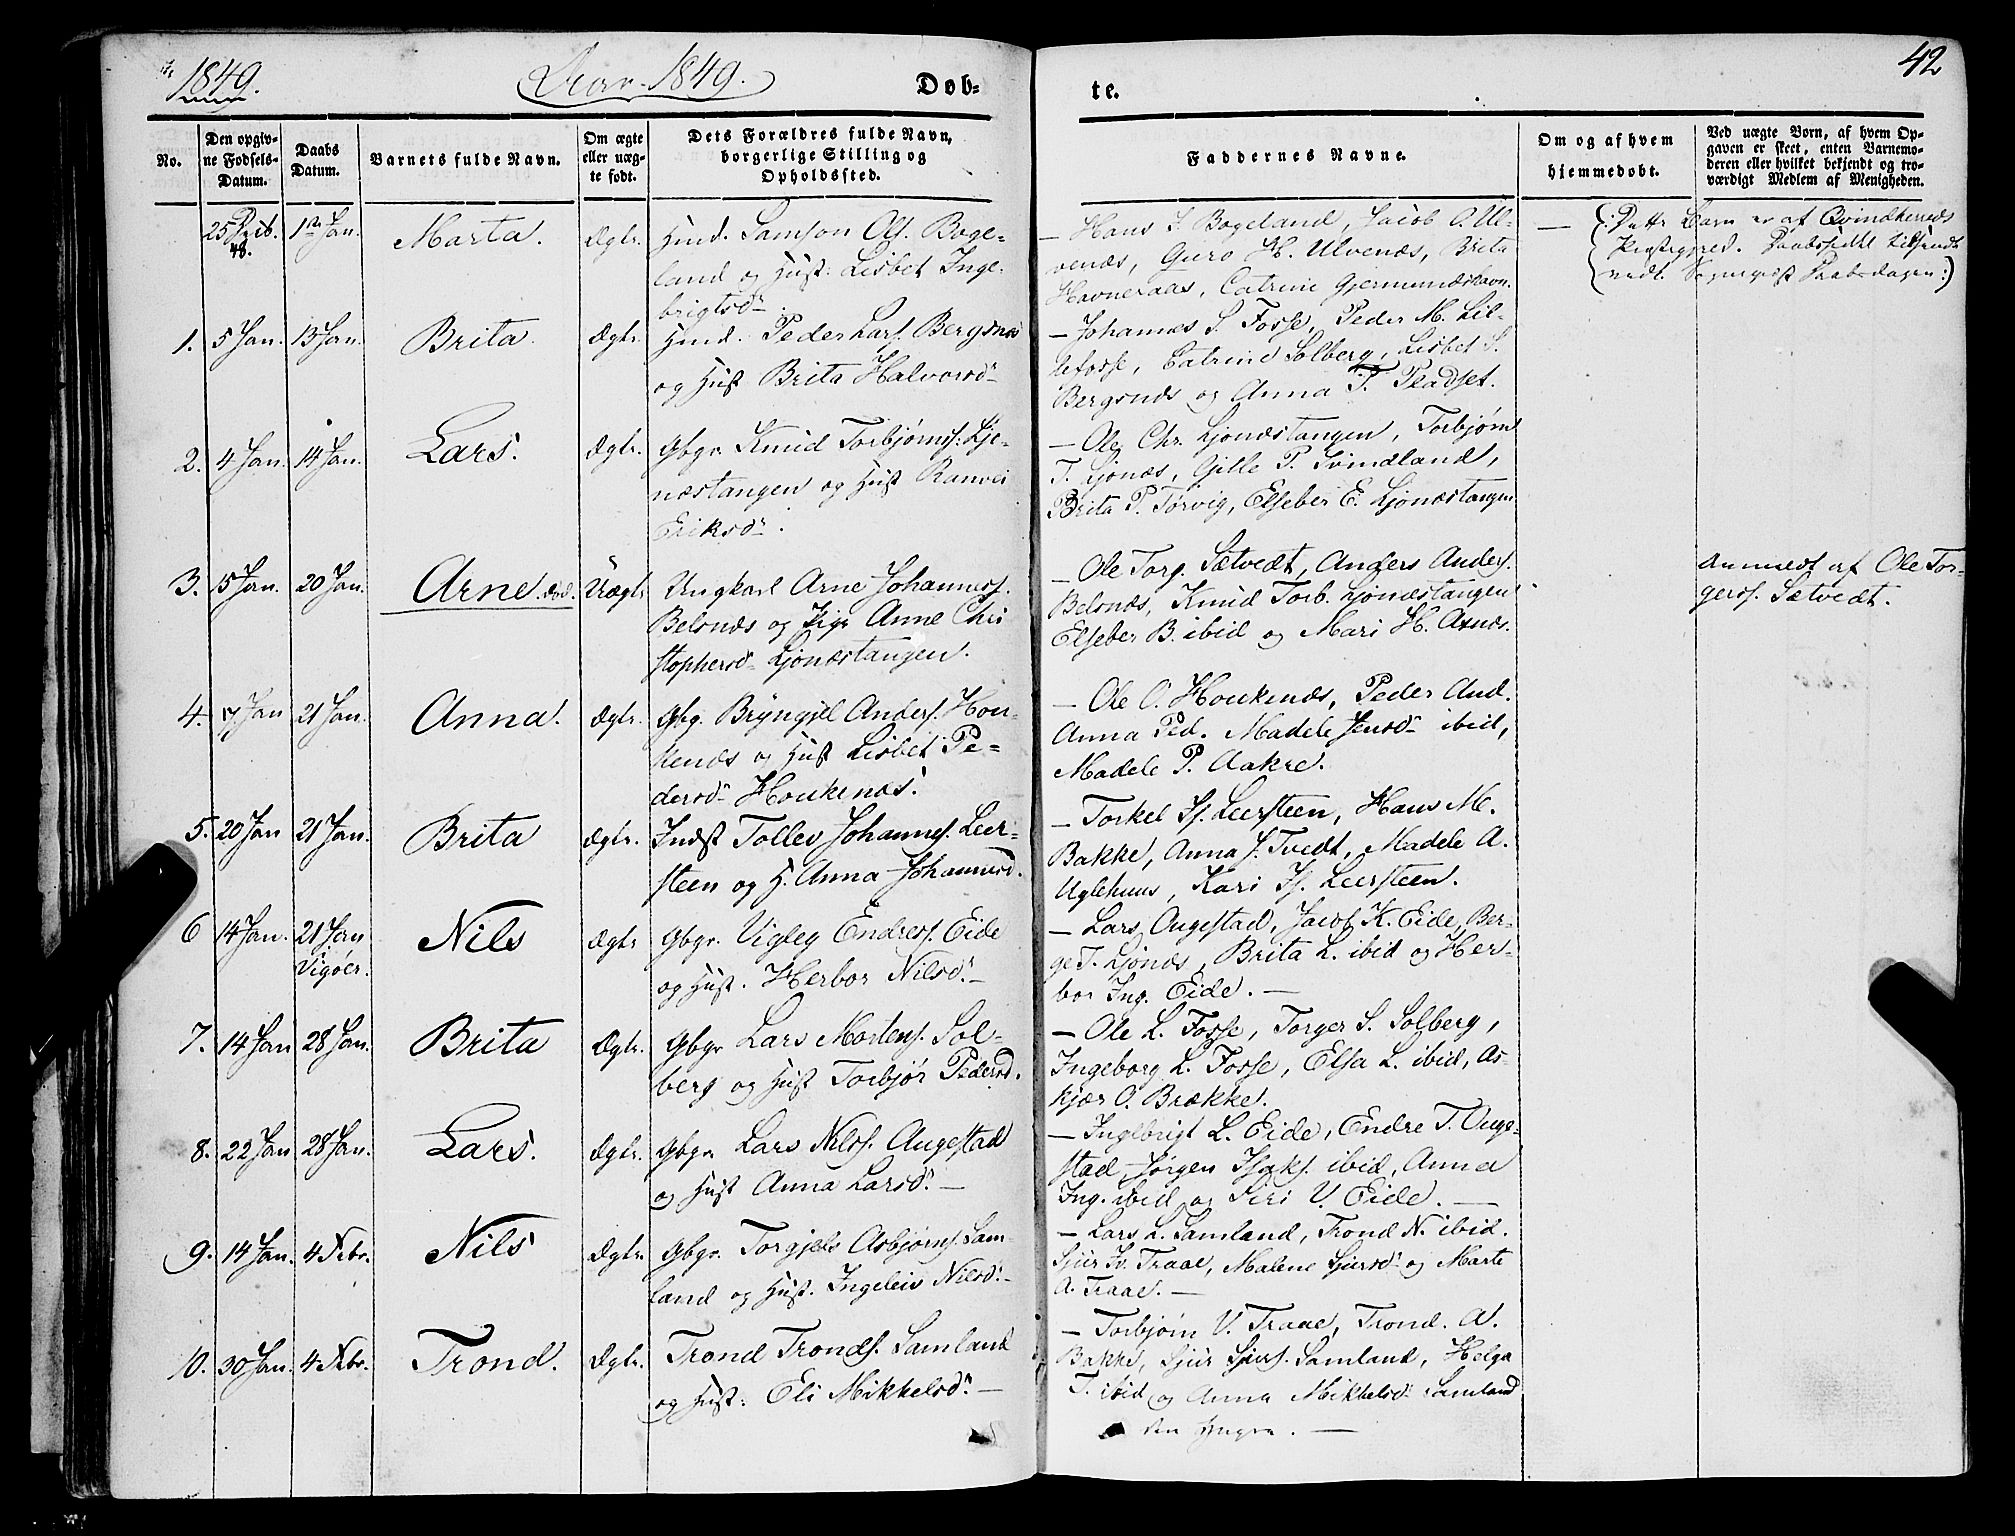 1849.
Aar 1849.
Døb=
te.
42
No.
Den opgiv-
ne Fødsels-
Datum.
Daabs
Datum.
Barnets fulde Navn.
Om ægte
eller uæg-
te født.
Dets Forældres fulde Navn,
borgerlige Stilling og
Opholdssted.
Faddernes Navne.
Om og af hvem
hjemmedøbt.
Ved uægte Børn, af hvem Op-
gaven er skeet, enten Barnemo-
deren eller hvilket bekjendt og tro-
værdigt Medlem af Menigheden.
25 Decb.
48.
1ste Jan.
Marta.
Ægte.
Huusm. Samson Ols. Boge-
land og Hust: Lisbet Inge-
brigtsd.
– Hans J. Bogeland, Jacob O. Ul-
venæs, Guro H. Ulvenæs, Brita
Havneraas, Catrine Gjermundshavn.
—
(: Dette Barn er af Qvindherreds
Præstegjeld.
Daabsdagen :)
1.
5 Jan.
13 Jan.
Brita.
Ægte.
Huusm. Peder Lars. Bergsnæs
og Hust Brita Halvorsd.
– Johannes S. Fosse, Peder M. Lil-
lefosse, Catrine Solberg, Lisbet S.
Bergsnæs og Anna T. Pladset.
2.
4 Jan.
14 Jan.
Lars.
Ægte.
Gbgr. Knud Torbjørns: Ljo-
næstangen og Hust Ranvei
Eriksd.
– Ole Chr. Ljonæstangen, Torbjørn
T. Ljonæs, Gille P. Svindland,
Brita P. Tørvig, Elseber E. Ljonæstangen
3.
15 Jan.
20 Jan.
Arne. død.
Uægte
Ungkarl Arne Johanness.
Belsnæs og Pige Anne Chri
stophersd Ljonæstangen.
– Ole Torg. Sætvedt, Anders Anders.
Belsnæs, Knud Torb. Ljonæstangen
Elseber B. ibid og Mari H. Axnæs.
Anmeldt af Ole Tor-
gerss. Sætvedt.
4.
17 Jan
21 Jan.
Anna.
Ægte.
Gbg. Bryngjel Anders. Hou-
kenæs og Hust Lisbet Pe-
dersd Houkenæs.
– Ole O. Houkenæs, Peder And.
Anna Ped. Madele Jensd ibid,
Madele P. Aakre.
5.
20 Jan
21 Jan.
Brita
Ægte.
Indst Tollev Johannes. Leer-
steen og H. Anna Johannesd.
– Torkel Is. Leersteen, Hans M.
Bakke, Anna J. Tvedt, Madele A.
Uglehuus, Kari Is. Leersteen.
6
14 Jan.
21 Jan
Vigøer.
Nils
Ægte
Gbgr. Vigleg Endress. Eide
og Hust. Herbor Nilsd. –
– Lars Augestad, Jacob K. Eide, Ber-
ge T. Ljonæs, Brita L. ibid og Her-
bor Ing. Eide. –
7.
14 Jan
28 Jan.
Brita
Ægte.
Gbgr Lars Mortens. Sol-
berg og Hust Torbjør Pedersd.
– Ole L. Fosse, Torger S. Solberg,
Ingeborg L. Fosse, Elsa L. ibid, As-
kjær O. Brække.
8.
22 Jan
28 Jan.
Lars.
Ægte.
Gbgr Lars Nilss. Augestad
og Hust Anna Larsd. –
– Ingebrigt L. Eide, Endre T. Auge-
stad, Jørgen Isaks. ibid, Anna
Ing. ibid og Siri V. Eide. –
9.
14 Jan.
4 Febr.
Nils
Ægte.
Gbgr. Torgjels Asbjørns. Sam-
land og Hust. Ingeleiv Nilsd. –
– Lars L. Samland, Trond N. ibid.
Sjur Iv. Traae, Malene Sjursd og Marte
A. Traae. –
10.
30 Jan.
4 Febr.
Trond.
Ægte.
Trond Tronds. Samland
og Hust: Eli Mikkelsd. –
– Torbjørn V. Traae, Trond. A.
Bakke, Sjur Sjurs. Samland, Helga
T. ibid og Anna Mikkelsd Samland
den Yngre. –